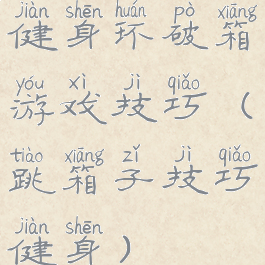 jiàn shēn huán pò xiāng
健身环破箱
yóu xì jì qiǎo
游戏技巧（
tiào xiāng zǐ jì qiǎo
跳箱子技巧
jiàn shēn
健身）